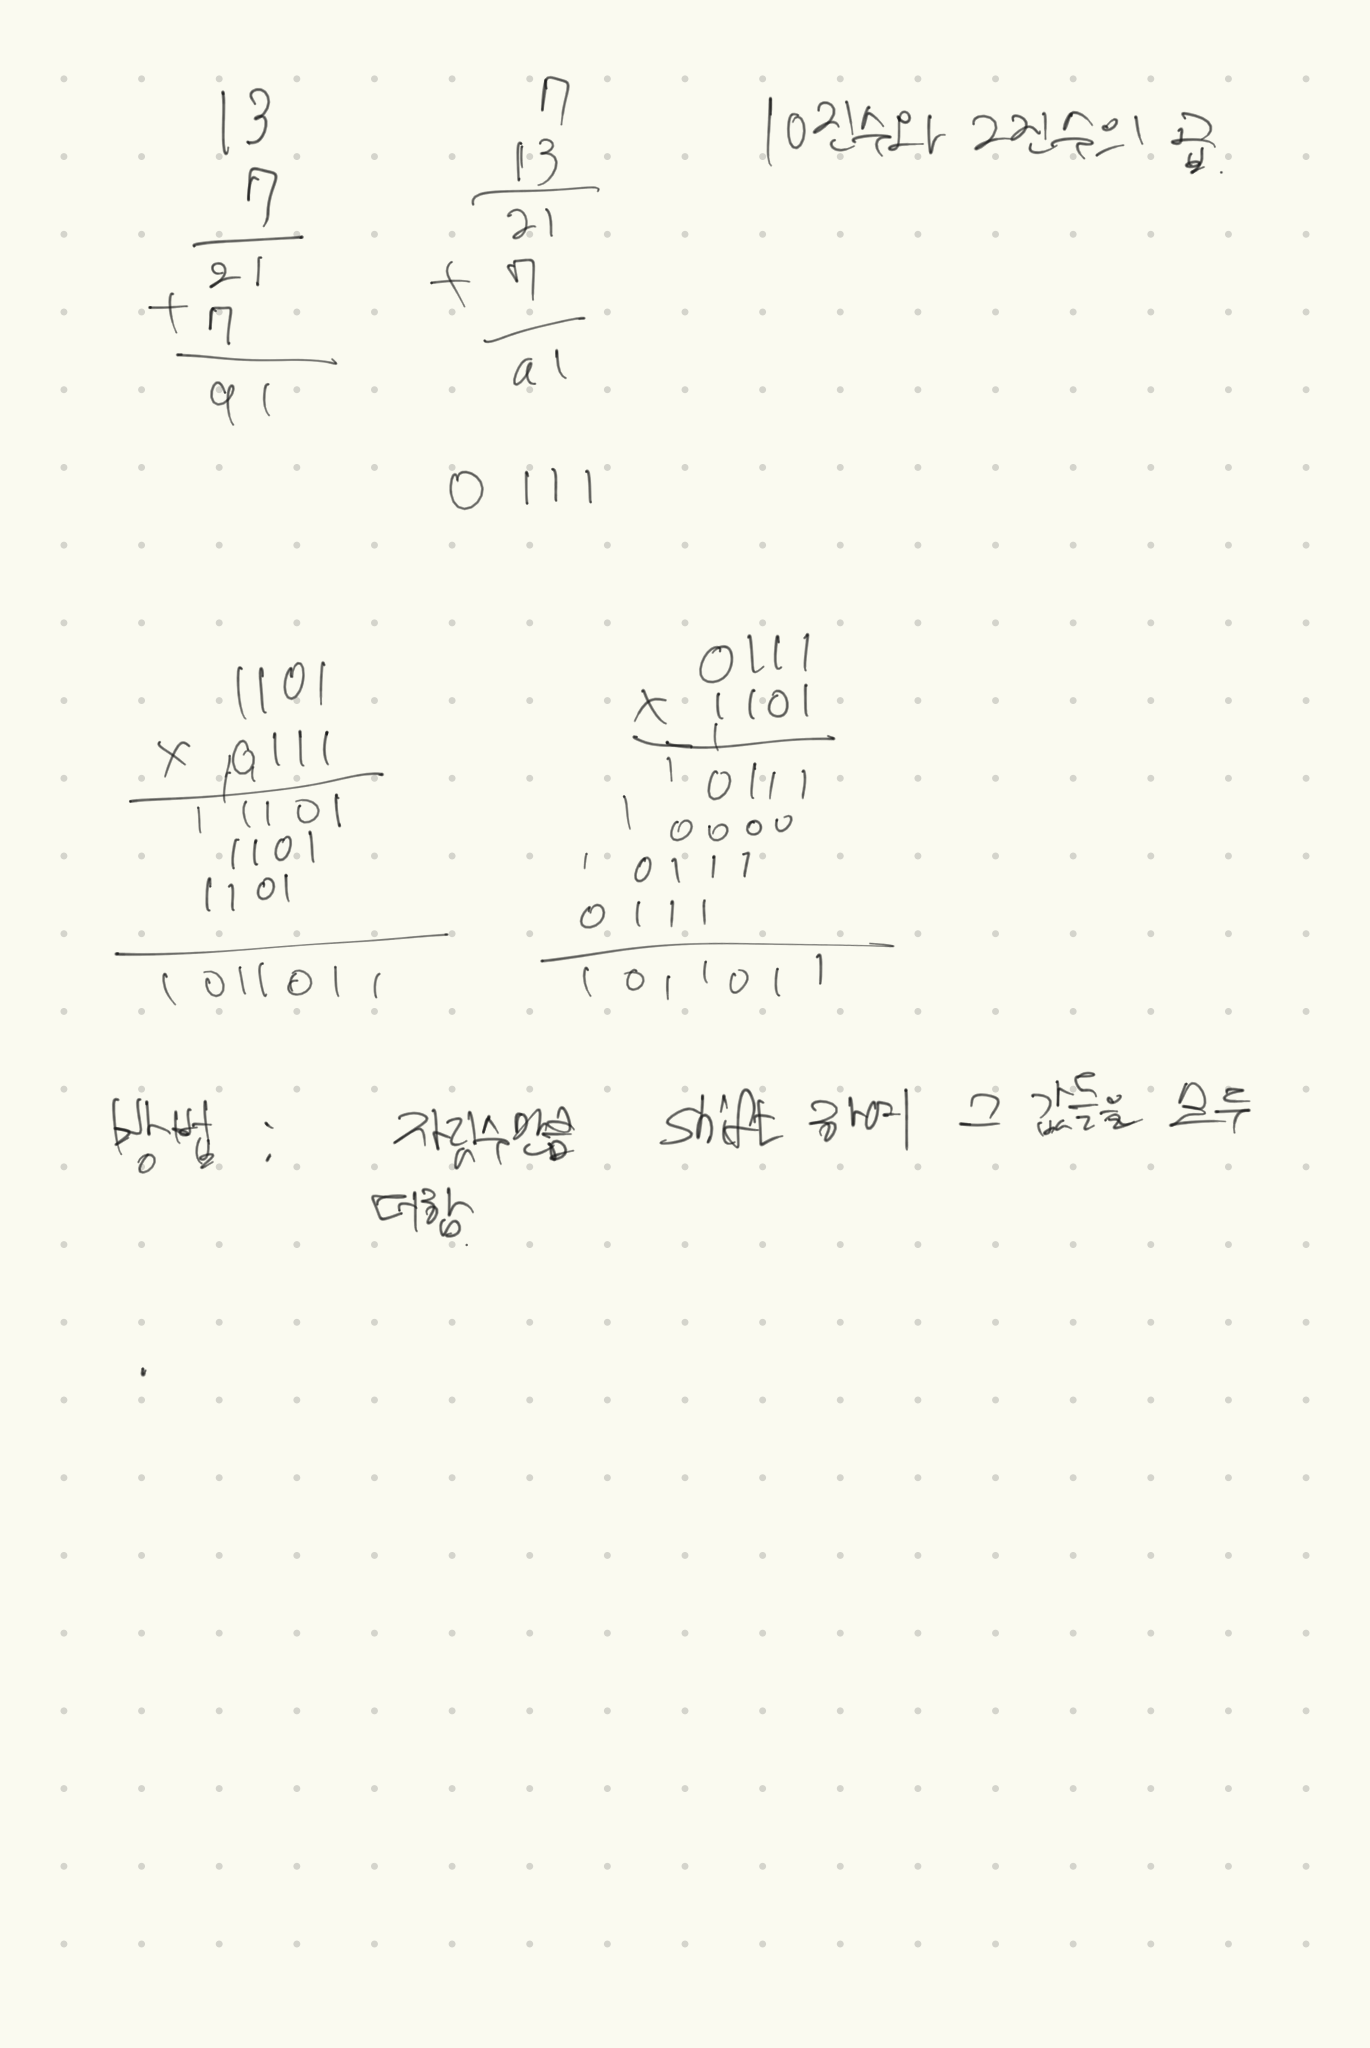 13
7
21
+ 7
91
7
13
21
+ 7
91
10진수와 2진수의 곱.
0111
1101
x 0111
1 1101
1101
1101
1011011
0111
x 1101
1
1 0111
1 0000
1 0111
0111
1011011
방법 : 자릿수만큼 shift 하여 그 값들을 모두
더함.